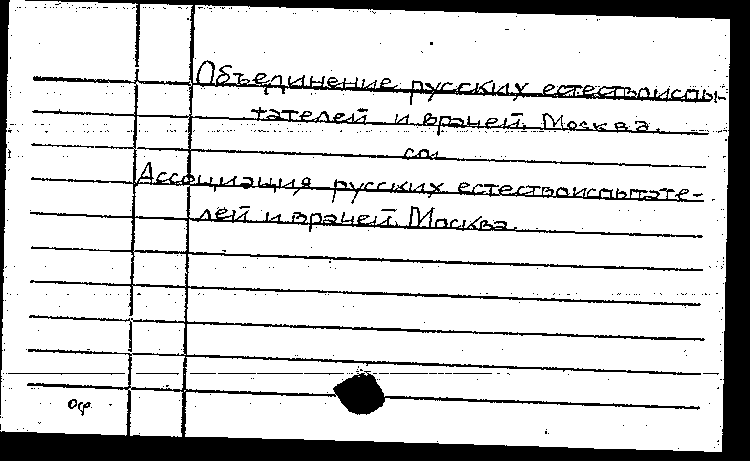 Объединение русских естествоиспы-
тателей и врачей. Москва.
см.
Ассоциация русских естествоиспытате-
лей и врачей. Москва.
оф